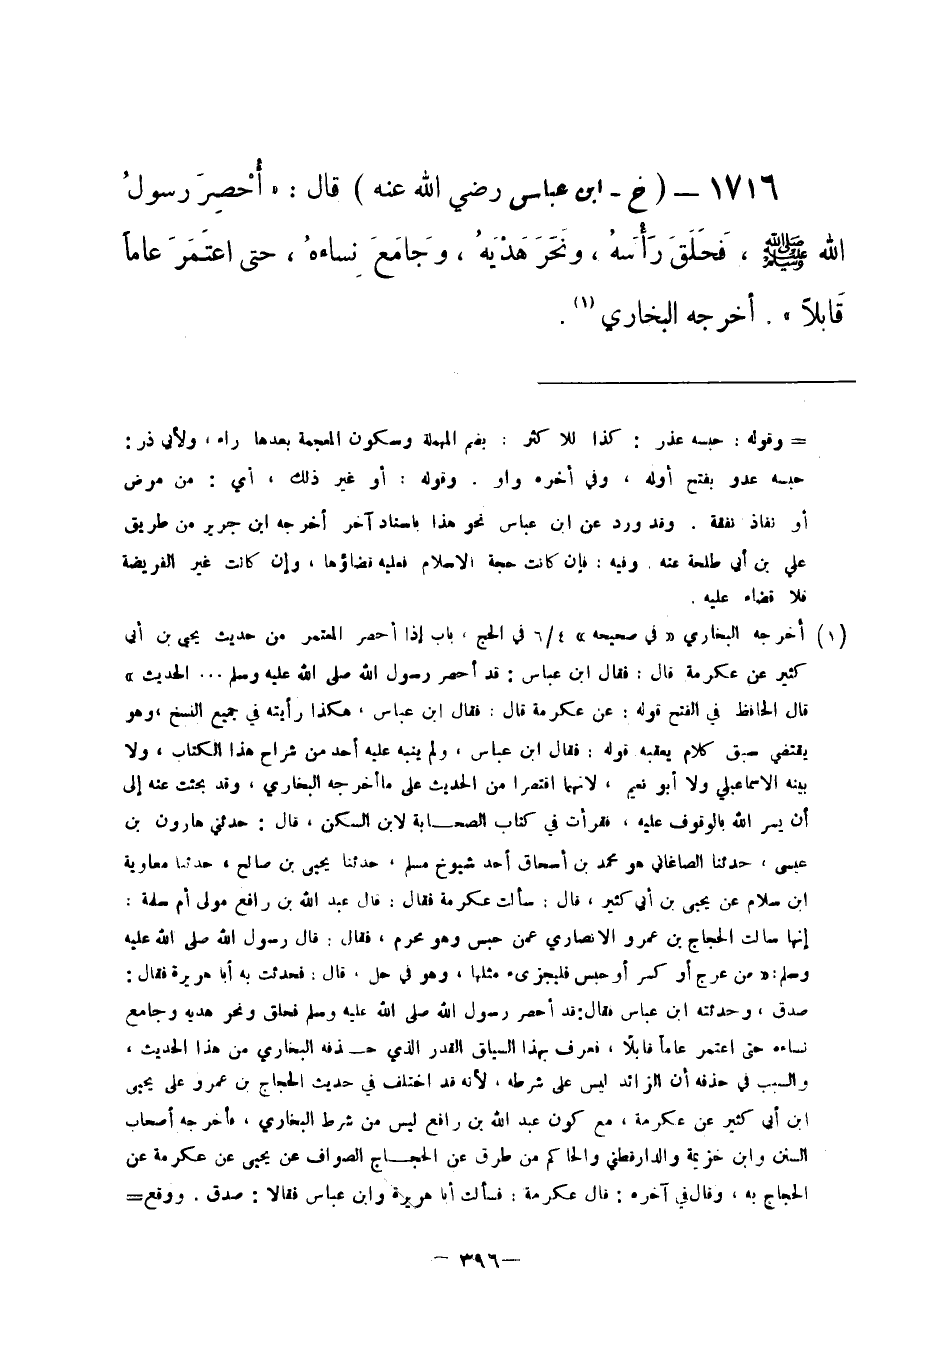 ١٧١٦ — ( خ - ابن عباس رضي الله عنه ) قال : « أُحْصِرَ رسولُ
الله ﷺ ، فَحَلَقَ رَأْسَهُ ، ونَحَرَ هَدْيَهُ ، وَجَامَعَ نِساءهُ ، حتى اعتَمَرَ عاماً
قَابلاً » . أخرجه البخاري (١) .
= وقوله : حبسه عذر : كذا للاكثر : بضم المهملة وسكون المعجمة بعدها راء ، ولأبي ذر :
حبسه عدو بفتح أوله ، وفي أخره واو . وقوله : أو غير ذلك ، أي : من مرض
أو نفاذ نفقة . وقد ورد عن ابن عباس نحو هذا باسناد آخر أخرجه ابن جرير من طريق
علي بن أبي طلحة عنه . وفيه : فإن كانت حجة الاسلام فعليه قضاؤها ، وإن كانت غير الفريضة
فلا قضاء عليه .
(١) أخرجه البخاري « في صحيحه » ٦/٤ في الحج ، باب إذا أحصر المعتمر من حديث يحيى بن أبي
كثير عن عكرمة قال : فقال ابن عباس : قد أحصر رسول الله صلى الله عليه وسلم ... الحديث »
قال الحافظ في الفتح قوله : عن عكرمة قال : فقال ابن عباس ، هكذا رأيته في جميع النسخ ، وهو
يقتضي سبق كلام يعقبه قوله : فقال ابن عباس ، ولم ينبه عليه أحد من شراح هذا الكتاب ، ولا
بينه الاسماعيلي ولا أبو نعيم ، لانهما اقتصرا من الحديث على ماأخرجه البخاري ، وقد بحثت عنه إلى
أن يسر الله بالوقوف عليه ، فقرأت في كتاب الصحابة لابن السكن ، قال : حدثني هارون بن
عيسى ، حدثنا الصاغاني هو محمد بن أسحاق أحد شيوخ مسلم ، حدثنا يحيى بن صالح ، حدثنا معاوية
ابن سلام عن يحيى بن أبي كثير ، قال : سألت عكرمة فقال : قال عبد الله بن رافع مولى أم سلمة :
إنها سالت الحجاج بن عمرو الانصاري عمن حبس وهو محرم ، فقال : قال رسول الله صلى الله عليه
وسلم : « من عرج أو كسر أو حبس فليجزىء مثلها ، وهو في حل ، قال : فحدثت به أبا هريرة فقال :
صدق ، وحدثته ابن عباس فقال : قد أحصر رسول الله صلى الله عليه وسلم فحلق ونحر هديه وجامع
نساءه حتى اعتمر عاماً قابلًا ، فعرف بهذا السياق القدر الذي حذفه البخاري من هذا الحديث ،
والسبب في حذفه أن الزائد ليس على شرطه ، لأنه قد اختلف في حديث الحجاج بن عمرو على يحيى
ابن أبي كثير عن عكرمة ، مع كون عبد الله بن رافع ليس من شرط البخاري ، فأخرجه أصحاب
السنن وابن خزيمة والدارقطني والحاكم من طرق عن الحجاج الصواف عن يحيى عن عكرمة عن
الحجاج به ، وقال في آخره : قال عكرمة : فسألت أبا هريرة وابن عباس فقالا : صدق . ووقع =
— ٣٩٦ —